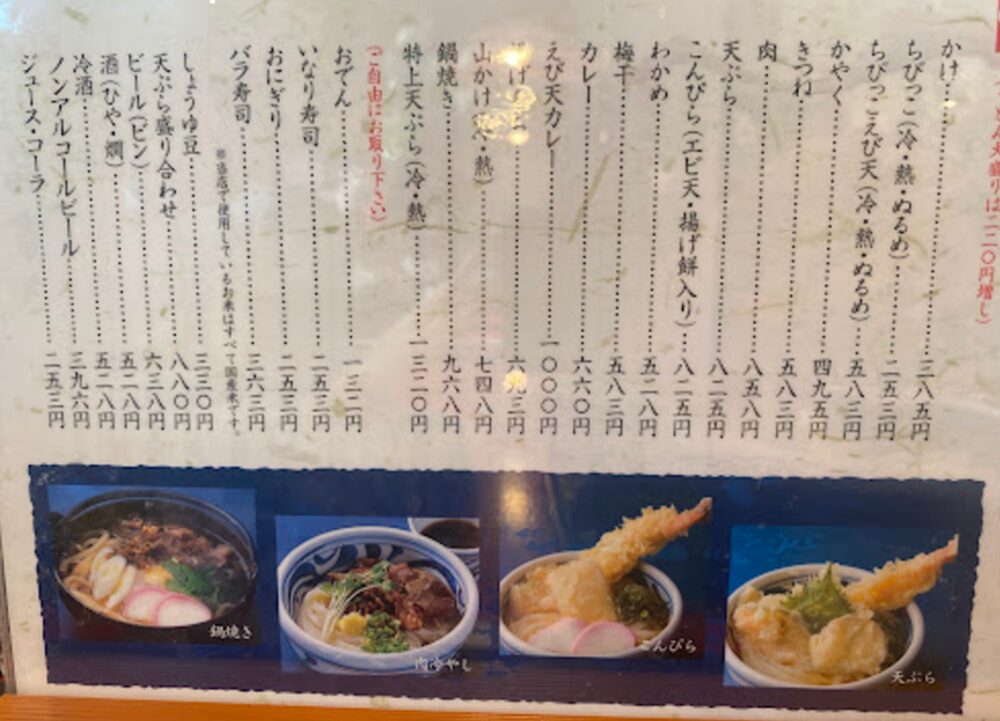 大盛りは一二〇円増し）
かけ 三八五円
ちびっこ（冷・熱・ぬるめ） 二五三円
ちびっこえび天（冷・熱・ぬるめ） 五八三円
かやく 四九五円
きつね 五八三円
肉 八五八円
天ぷら 八二五円
こんぴら（エビ天・揚げ餅入り） 八二五円
わかめ 五二八円
梅干 五八三円
カレー 六六〇円
えび天カレー 一〇〇〇円
六九三円
山かけ（冷・熱） 七四八円
鍋焼き 九六八円
特上天ぷら（冷・熱） 一三二〇円
（ご自由にお取り下さい）
おでん 一三二円
いなり寿司 二五三円
おにぎり 二五三円
バラ寿司 三六三円
※当店で使用しているお米はすべて国産米です。
しょうゆ豆 三三〇円
天ぷら盛り合わせ 八八〇円
ビール（ビン） 六三八円
酒（ひや・燗） 五二八円
冷酒 五二八円
ノンアルコールビール 三九六円
ジュース・コーラ 二五三円
鍋焼き
肉冷やし
こんぴら
天ぷら